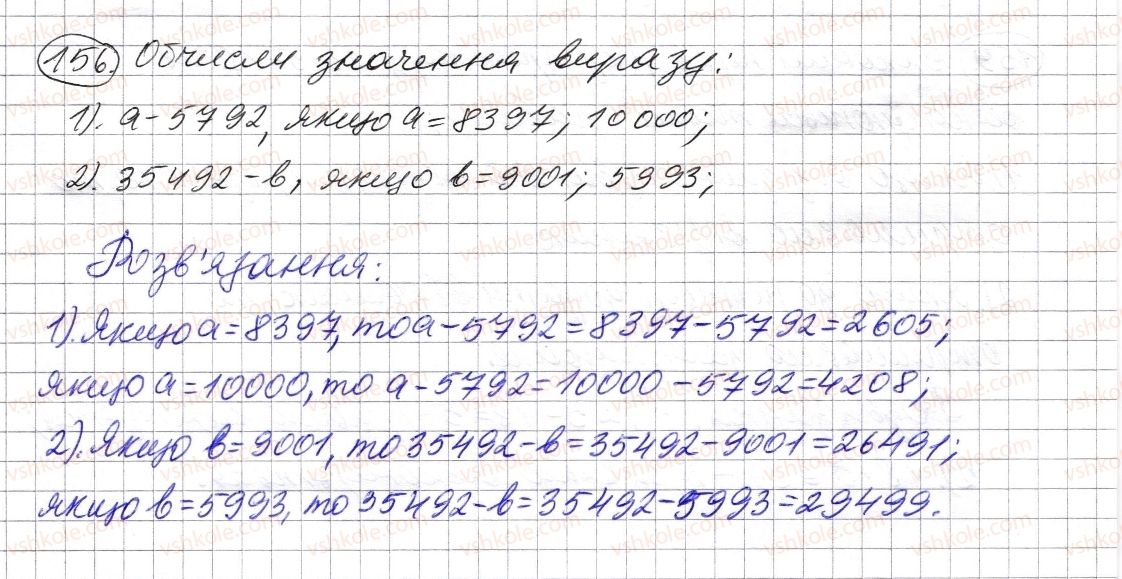 156. Обчисли значення виразу:
1). а - 5792, якщо а = 8397; 10000;
2). 35492 - в, якщо в = 9001; 5993;
Розв'язання:
1). Якщо а = 8397, то а - 5792 = 8397 - 5792 = 2605;
якщо а = 10000, то а - 5792 = 10000 - 5792 = 4208;
2). Якщо в = 9001, то 35492 - в = 35492 - 9001 = 26491;
якщо в = 5993, то 35492 - в = 35492 - 5993 = 29499.